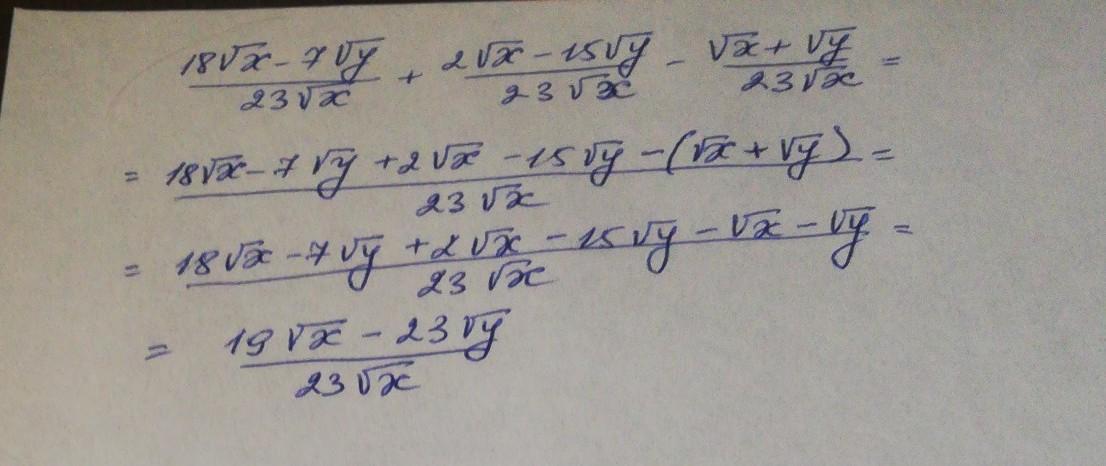 (18√x - 7√y)/(23√x) + (2√x - 15√y)/(23√x) - (√x + √y)/(23√x) =
= (18√x - 7√y + 2√x - 15√y - (√x + √y))/(23√x) =
= (18√x - 7√y + 2√x - 15√y - √x - √y)/(23√x) =
= (19√x - 23√y)/(23√x)